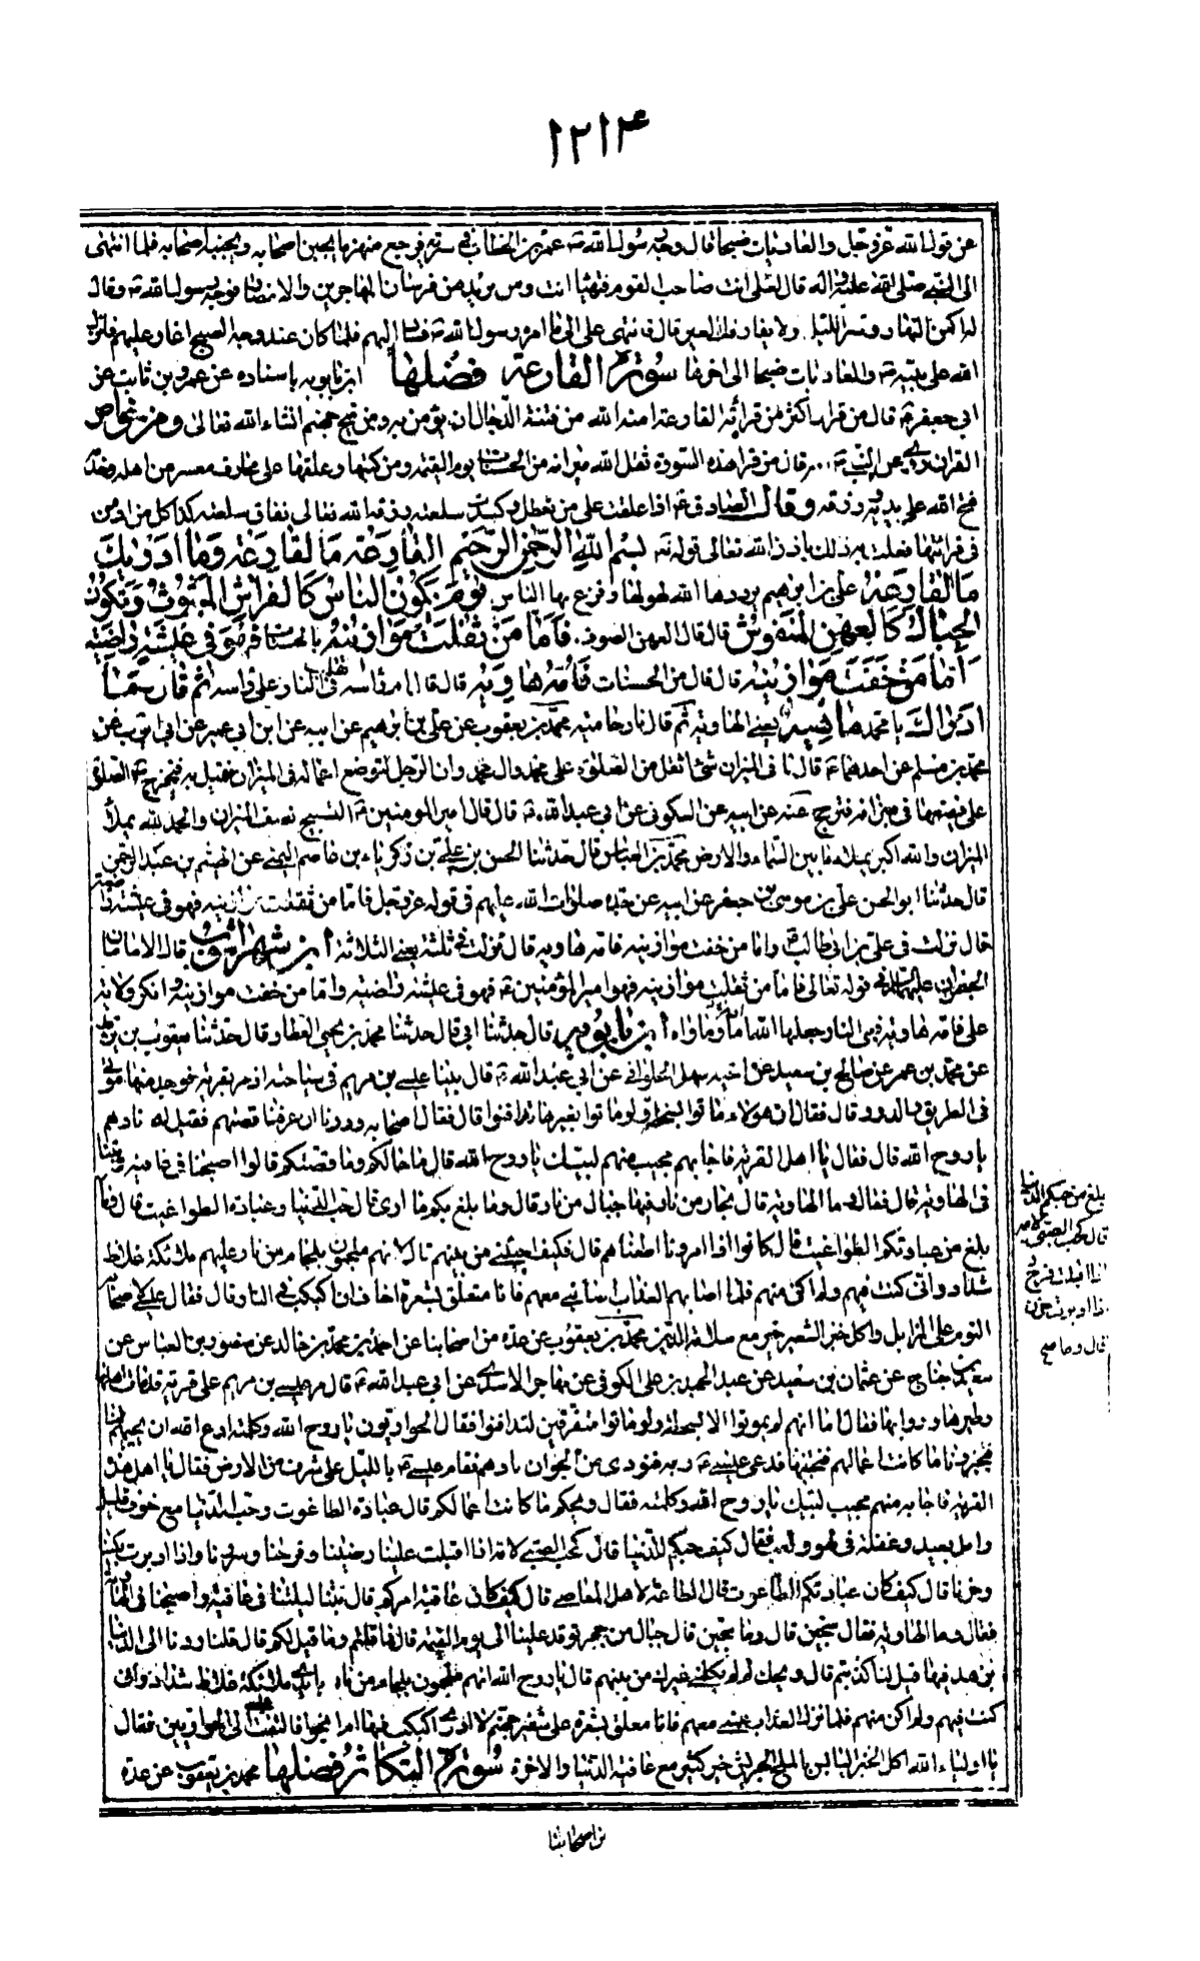 ١٢١٤
عن قول الله عز وجل والعاديات ضبحا قال وجه رسول الله ص عمر بن الخطاب في سرية فرجع منهزما يجبن اصحابه ويجبنه اصحابه فلما انتهى
الى النبي صلى الله عليه واله قال لعلي انت صاحب القوم فتهيأ انت ومن تريد من فرسان المهاجرين والانصار فوجه رسول الله ص وقال
له اكمن النهار وسر الليل ولا يفارقك العين قال فانتهى علي الى ما امره رسول الله ص فسار اليهم فلما كان عند وجه الصبح اغار عليهم فانزل
الله على نبيه ص والعاديات ضبحا الى اخرها سورة القارعة فضلها ابن بابويه باسناده عن عمرو بن ثابت عن
ابي جعفر ع قال من قرأ اكثر من قرائة القارعة امنه الله من فتنة الدجال ان يؤمن به ومن قيح جهنم انشاء الله تعالى ومن خواص
القران روي عن النبي ص قال من قرأ هذه السورة ثقل الله ميزانه من الحسنات يوم القيمة ومن كتبها وعلقها على محارف معسر من اهله
فتح الله على يديه ورزقه وقال الصادق ع اذا علقت على من تعطل وكسدت سلعته رزقه الله تعالى نفاق سلعته كذا كل من ادمن
في قرائتها فعلت به ذلك باذن الله تعالى قوله تعالى بسم الله الرحمن الرحيم القارعة ما القارعة وما ادريك
ما القارعة علي بن ابرهيم يرددها الله لهولها وفزع بها الناس يوم يكون الناس كالفراش المبثوث وتكون
الجبال كالعهن المنفوش قال قال العهن الصوف فاما من ثقلت موازينه بالحسنات فهو في عيشة راضية
واما من خفت موازينه قال قال من الحسنات فامه هاوية قال قال ام رأسه يقلب في النار على رأسه ثم قال وما
ادراك يا محمد ما هيه يعني الهاوية ثم قال نار حامية محمد بن يعقوب عن علي بن ابرهيم عن ابيه عن ابن ابي عمير عن ابي ايوب عن
محمد بن مسلم عن احدهما ع قال ما في الميزان شئ اثقل من الصلوة على محمد وال محمد وان الرجل لتوضع اعماله في الميزان فتميل به فيخرج ص الصلوة
عليه فيضعها في ميزانه فترجح عنه عن ابيه عن السكوني عن ابي عبدالله ع قال قال امير المومنين ع التسبيح نصف الميزان والحمد لله يملأ
الميزان والله اكبر يملأ ما بين السماء والارض محمد بن العباس قال حدثنا الحسن بن علي بن زكرياء بن عاصم اليمني عن الهيثم بن عبد الرحمن
قال حدثنا ابو الحسن علي بن موسى بن جعفر عن ابيه عن جده صلوات الله عليهم في قوله عز وجل فاما من ثقلت موازينه فهو في عيشة راضية
قال نزلت في علي بن ابي طالب ع واما من خفت موازينه فامه هاوية قال نزلت في ثلثة يعني الثلاثة ابن شهراشوب قال الامامان
الجعفران عليهما السلام في قوله تعالى فاما من ثقلت موازينه فهو امير المؤمنين ع فهو في عيشة راضية واما من خفت موازينه وانكر ولاية
علي فامه هاوية فهي النار جعلها الله امه ومأواه ابن بابويه قال حدثنا ابي قال حدثنا محمد بن يحيى العطار قال حدثنا يعقوب بن يزيد
عن محمد بن عمر عن صالح بن سعيد عن اخيه سهل الحلواني عن ابي عبدالله ع قال بينا عيسى بن مريم في سياحته اذ مر بقرية فوجد منها موتى
في الطريق والدور قال فقال ان هؤلاء ماتوا بسخطة ولو ماتوا بغيرها تدافنوا قال فقال اصحابه وددنا ان عرفنا قصتهم فقيل له نادهم
يا روح الله قال فقال يا اهل القرية فاجابهم مجيب منهم لبيك يا روح الله قال ما حالكم وما قصتكم قالوا اصبحنا في عافية وبتنا
في الهاوية قال فقال وما الهاوية قال بحار من نار فيها جبال من نار قال وما بلغ بكم ما ارى قال حب الدنيا وعبادة الطواغيت قال وما
بلغ من عبادتكم الطواغيت قال كانوا اذا امرونا اطعناهم قال فكيف اجبتني من بينهم قال لانهم ملجمون بلجام من نار عليهم ملائكة غلاظ
شداد واني كنت فيهم ولم اكن منهم فلما اصابهم العذاب اصابني معهم فانا متعلق بشعرة اخاف ان اكبكب في النار قال فقال عيسى لاصحابه
النوم على المزابل واكل خبز الشعير خير مع سلامة الدين محمد بن يعقوب عن عدة من اصحابنا عن احمد بن محمد بن خالد عن منصور بن العباس عن
سعيد بن جناح عن عثمان بن سعيد عن عبد الحميد بن علي الكوفي عن مهاجر الاسدي عن ابي عبد الله ع قال مر عيسى بن مريم على قرية قد مات اهلها
وطيرها ودوابها فقال اما انهم لم يموتوا الا بسخطة ولو ماتوا متفرقين لتدافنوا فقال الحواريون يا روح الله وكلمته ادع الله ان يحييهم لنا
فيخبرونا ما كانت اعمالهم فنجتنبها فدعى عيسى ع ربه فنودي من الجو ان نادهم فقام عيسى ع بالليل على شرف من الارض فقال يا اهل هذه
القرية فاجابه منهم مجيب لبيك يا روح الله وكلمته فقال ويحكم ما كانت اعمالكم قال عبادة الطاغوت وحب الدنيا مع خوف قليل
وامل بعيد وغفلة في لهو ولعب فقال كيف حبكم للدنيا قال كحب الصبي لامه اذا اقبلت علينا رضينا وفرحنا وسررنا واذا ادبرت بكينا
وحزنا قال كيف كان عبادتكم الطاغوت قال الطاعة لاهل المعاصي قال كيف كان عاقبة امركم قال بتنا ليلتنا في عافية واصبحنا في الهاوية
فقال وما الهاوية فقال سجين قال وما سجين قال جبال من جمر توقد علينا الى يوم القيمة قال فما قلتم وما قيل لكم قال قلنا ردنا الى الدنيا
نزهد فيها قيل لنا كذبتم قال ويحك لم لم يكلمني غيرك من بينهم قال يا روح الله انهم ملجمون بلجام من نار بايدي ملائكة غلاظ شداد واني
كنت فيهم ولم اكن منهم فلما نزل العذاب عمني معهم فانا معلق بشعرة على شفير جهنم لا ادري اكبكب فيها ام انجو منها فالتفت عيسى الى الحواريين فقال
يا اولياء الله اكل الخبز اليابس بالملح الجريش خير كثير مع عافية الدنيا والاخرة سورة التكاثر فضلها محمد بن يعقوب عن عدة
من اصحابنا
بلغ من حبكم الدنيا
قال كحب الصبي لامه
اذا اقبلت فرح
واذا ادبرت حزن
قال وما صح